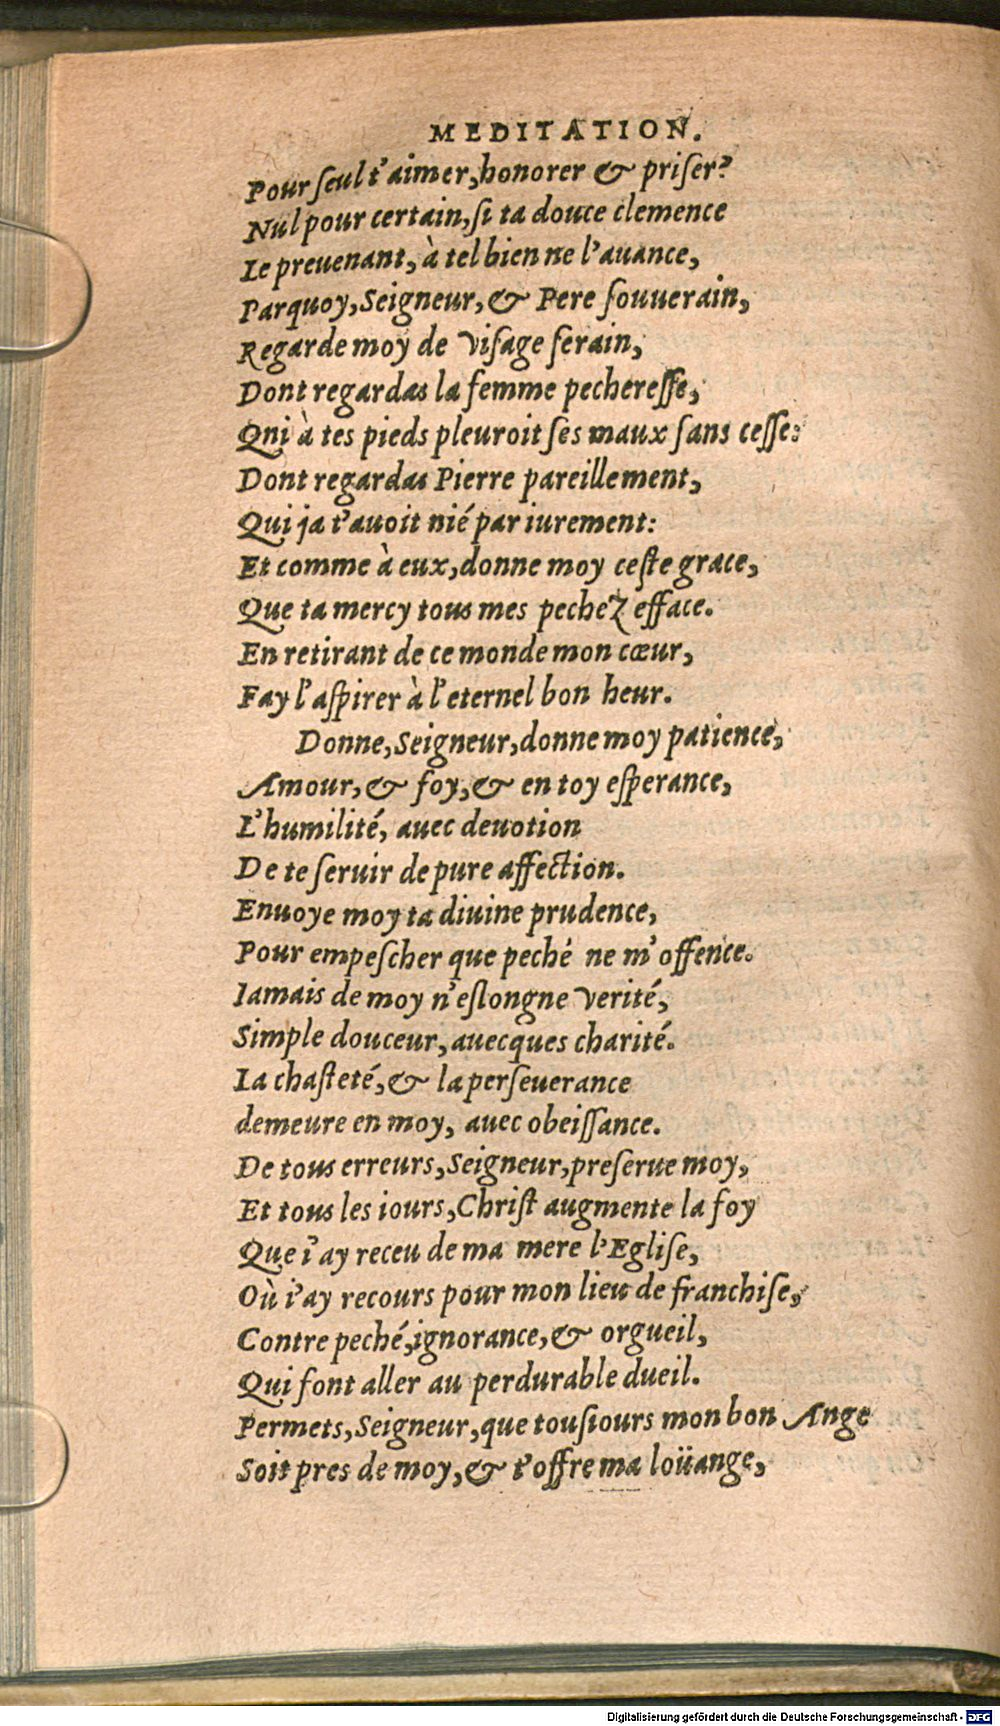 MEDITATION.
Pour ſeul t'aimer, honorer & priſer?
Nul pour certain, ſi ta douce clemence
Le preuenant, à tel bien ne l'auance,
Parquoy, Seigneur, & Pere ſouuerain,
Regarde moy de viſage ſerain,
Dont regardas la femme pechereſſe,
Qni à tes pieds pleuroit ſes maux ſans ceſſe:
Dont regardas Pierre pareillement,
Qui ja t'auoit nié par iurement:
Et comme à eux, donne moy ceſte grace,
Que ta mercy tous mes pechez efface.
En retirant de ce monde mon cœur,
Fay l'aſpirer à l'eternel bon heur.
Donne, Seigneur, donne moy patience,
Amour, & foy, & en toy eſperance,
L'humilité, auec deuotion
De te ſeruir de pure affection.
Enuoye moy ta diuine prudence,
Pour empeſcher que peché ne m'offence.
Iamais de moy n'eſlongne verité,
Simple douceur, auecques charité.
La chaſteté, & la perſeuerance
demeure en moy, auec obeiſſance.
De tous erreurs, Seigneur, preſerue moy,
Et tous les iours, Chriſt augmente la foy
Que i'ay receu de ma mere l'Egliſe,
Où i'ay recours pour mon lieu de franchiſe,
Contre peché, ignorance, & orgueil,
Qui font aller au perdurable dueil.
Permets, Seigneur, que touſiours mon bon Ange
Soit pres de moy, & t'offre ma loüange,
Digitalisierung gefördert durch die Deutsche Forschungsgemeinschaft - DFG